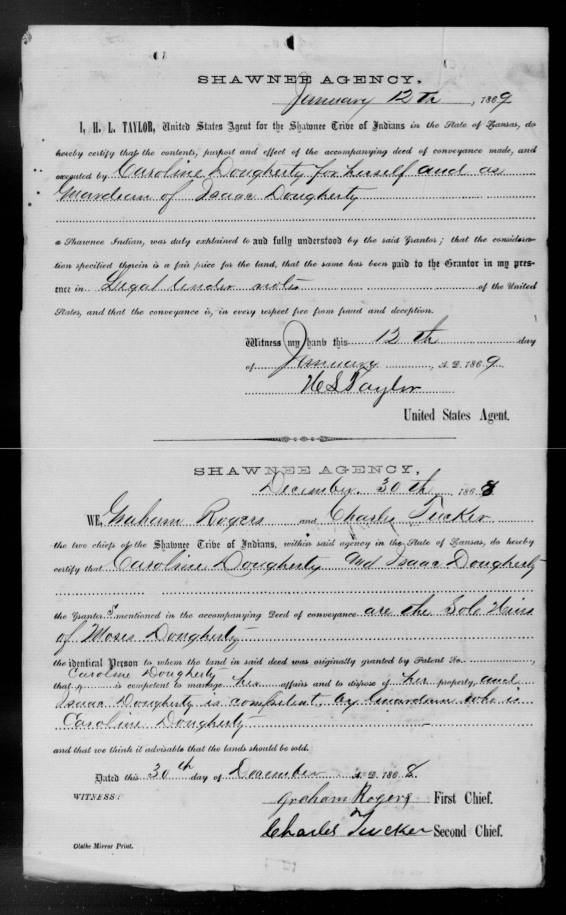 SHAWNEE AGENCY,
January 12th, 1869
I, H. L. TAYLOR, United States Agent for the Shawnee Tribe of Indians in the State of Kansas, do
hereby certify that the contents, purport and effect of the accompanying deed of conveyance made, and
executed by Caroline Dougherty for herself and as
Guardian of Isaac Dougherty
a Shawnee Indian, was duly explained to and fully understood by the said Grantor; that the considera-
tion specified therein is a fair price for the land, that the same has been paid to the Grantor in my pres-
ence in Legal tender notes of the United
States, and that the conveyance is, in every respect free from fraud and deception.
Witness my hand this 12th day
of January, A. D. 1869.
H L Taylor
United States Agent.
SHAWNEE AGENCY,
December 30th 1868
WE, Graham Rogers and Charles Tucker
the two chiefs of the Shawnee Tribe of Indians, within said agency in the State of Kansas, do hereby
certify that Caroline Dougherty and Isaac Dougherty
the Grantor s mentioned in the accompanying Deed of conveyance are the Sole Heirs
of Moses Dougherty
the identical Person to whom the land in said deed was originally granted by Patent No.
Caroline Dougherty
that is competent to manage her affairs and to dispose of her property, and
Isaac Dougherty is competent, by Guardian who is
Caroline Dougherty
and that we think it advisable that the lands should be sold.
Dated this 30th day of December A. D. 1868.
WITNESS:
Graham Rogers First Chief.
Charles Tucker Second Chief.
Olathe Mirror Print.